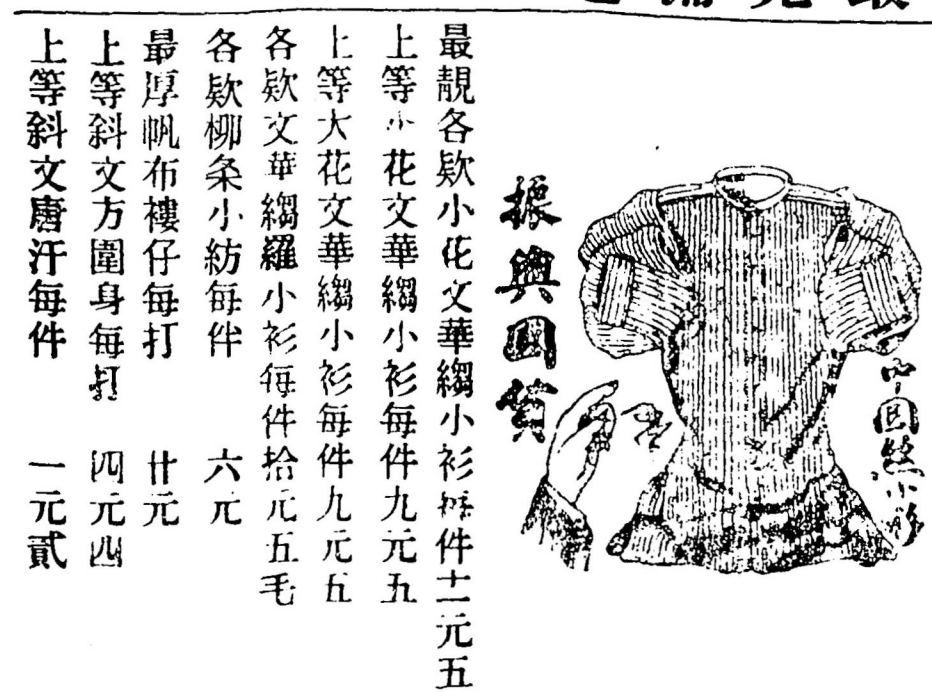 振興國貨
中国絲小衫
最靚各欵小花文華縐小衫每件十一元五
上等小花文華縐小衫每件九元五
上等大花文華縐小衫每件九元五
各欵文華縐羅小衫每件拾元五毛
各欵柳条小紡每件 六元
最厚帆布褸仔每打 廿元
上等斜文方圍身每打 四元四
上等斜文唐汗每件 一元貳